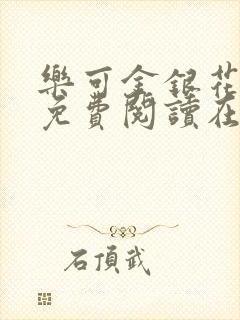 樂可金銀花
免費閱讀在
石頂武